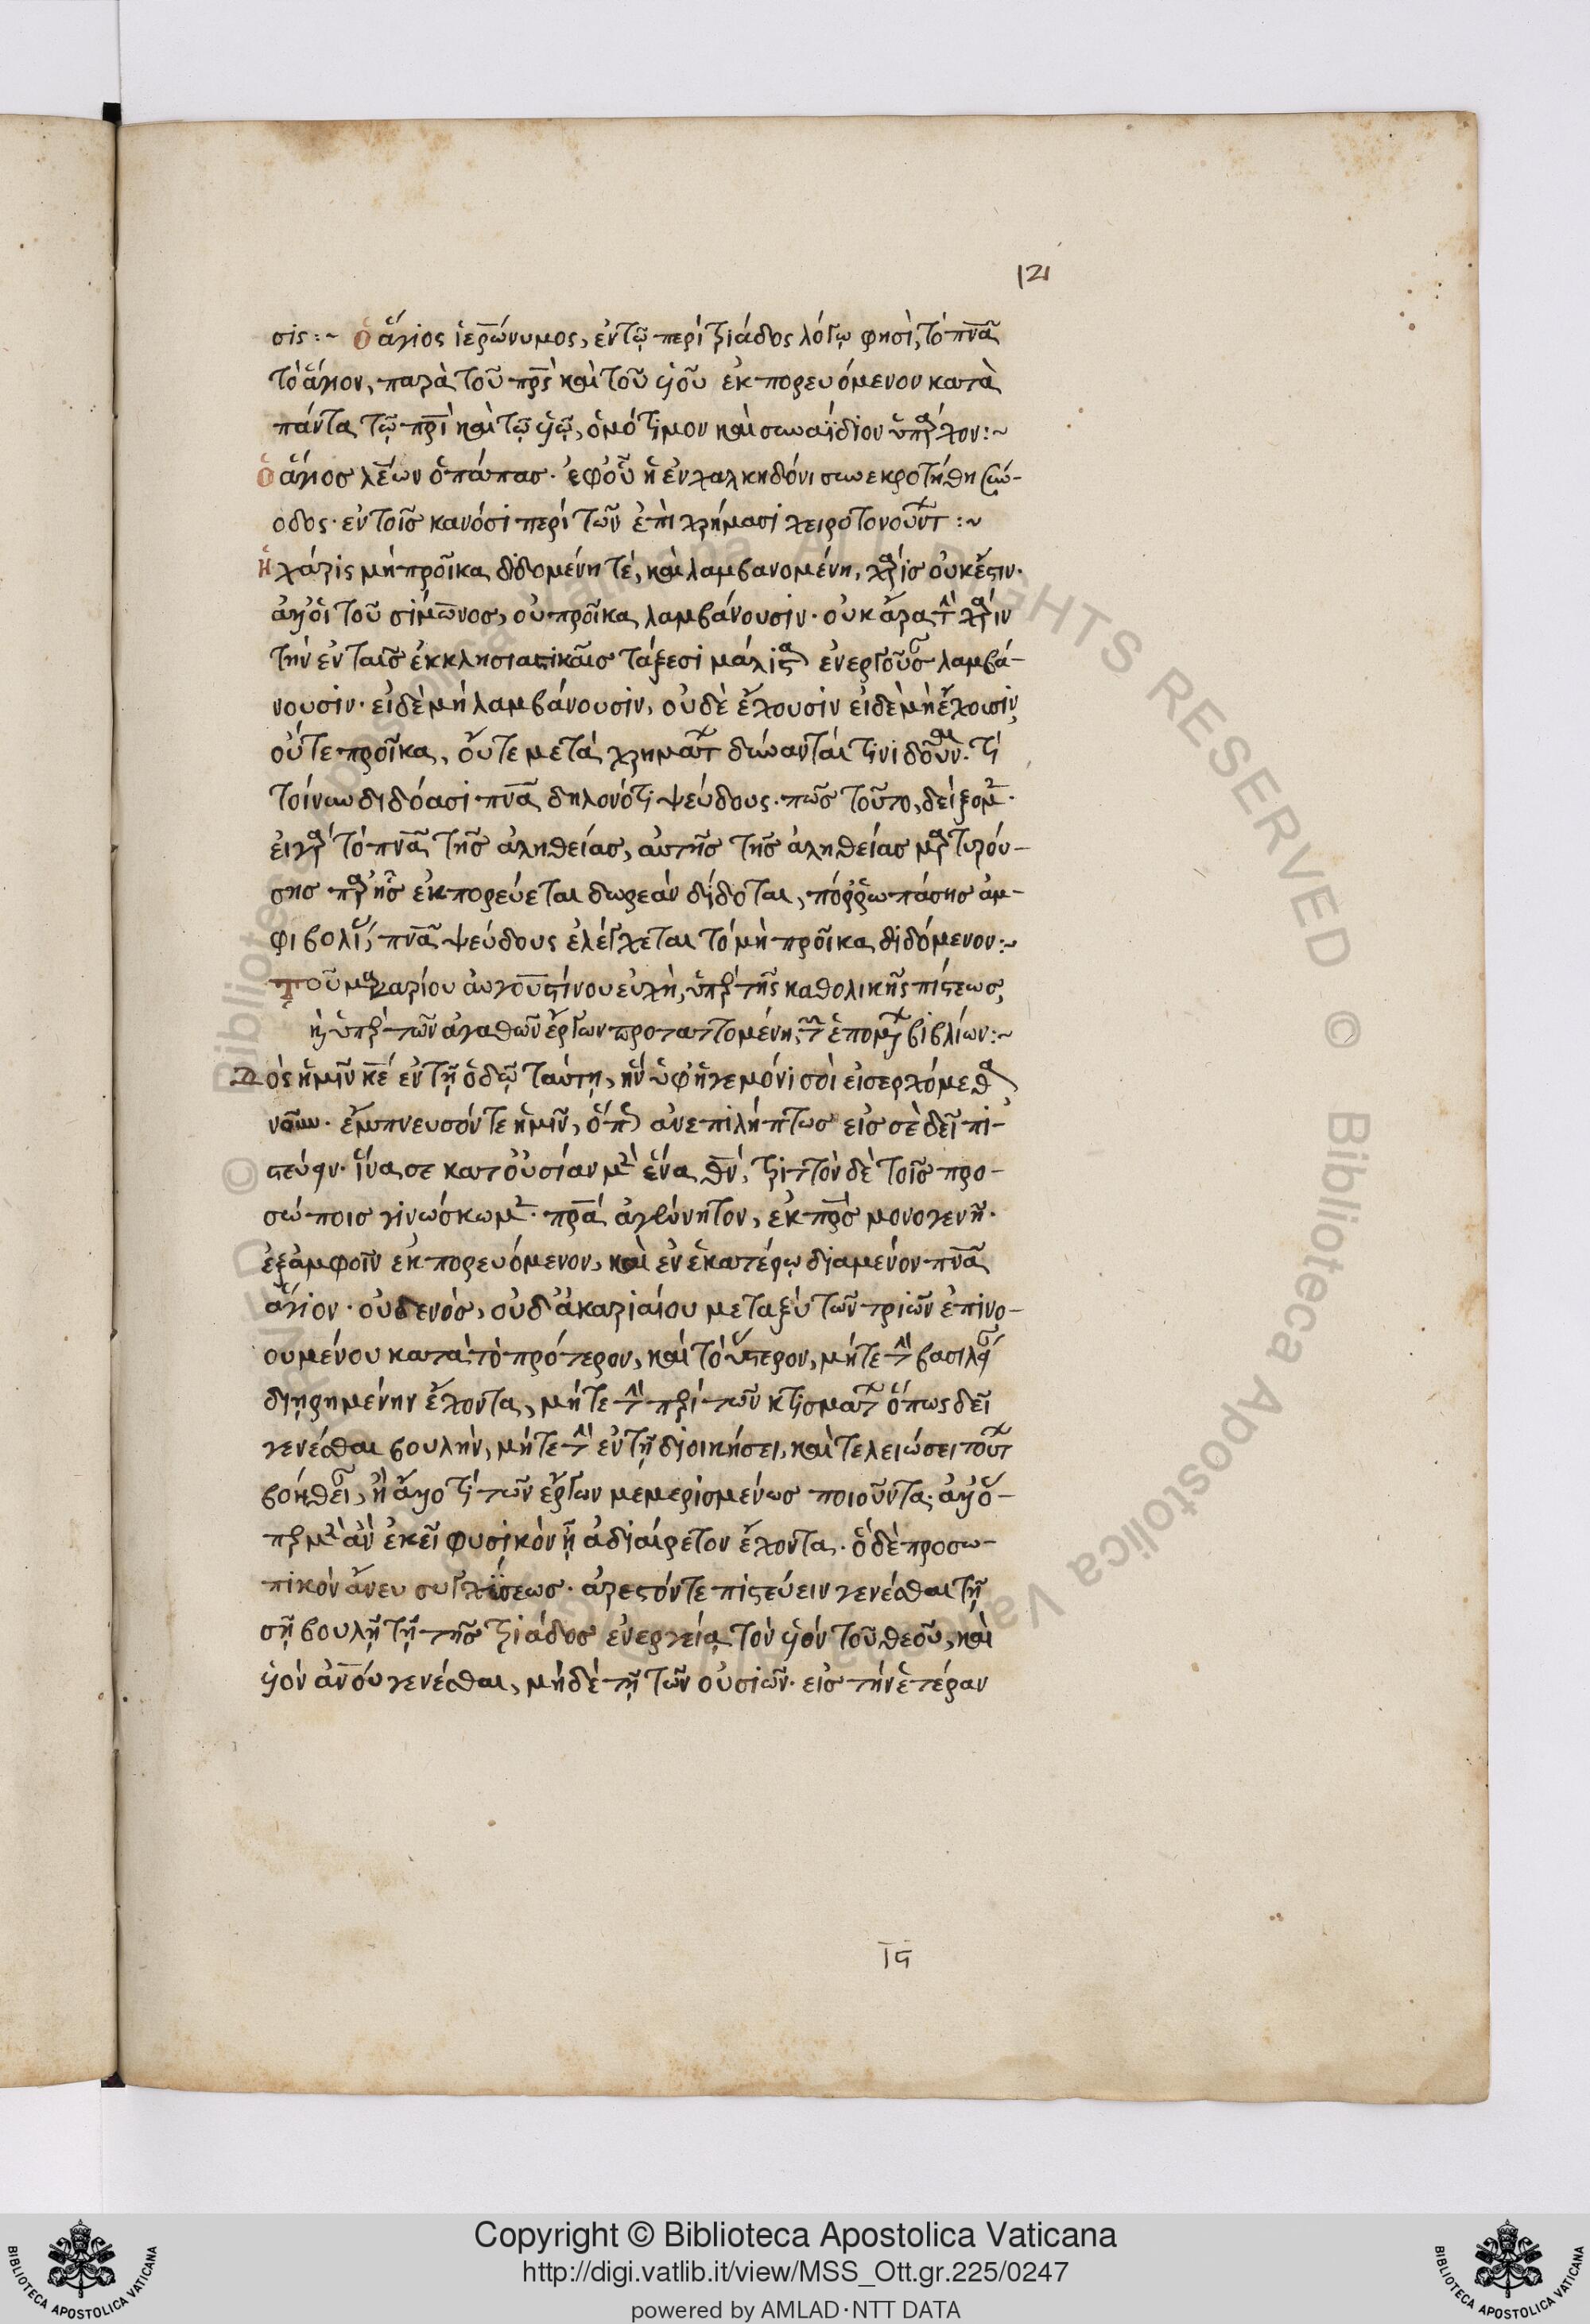 121
σις:~ ὁ ἅγιος ἱερώνυμος, ἐν τῷ περὶ τριάδος λόγῳ φησὶ, τὸ πνᾶ
τὸ ἅγιον, παρὰ τοῦ πρς καὶ τοῦ υἱοῦ ἐκπορευόμενον κατὰ
πάντα τῷ πρι καὶ τῷ υἱῷ, ὁμότιμον καὶ συναΐδιον ὑπάρχον:~
ὁ ἅγιος λέων ὁ πάπας· ἐφ' οὗ ἡ ἐν χαλκηδόνι συνεκροτήθη σύν-
οδος· ἐν τοῖς κανόσι περὶ τῶν ἐπὶ χρήμασι χειροτονούντ:~
ἡ χάρις μὴ προῖκα διδομένη τὲ, καὶ λαμβανομένη, χάρις οὐκ ἔστιν·
ἀλλ' οἱ τοῦ σίμωνος, οὐ προῖκα λαμβάνουσιν· οὐκ ἄρα τὴν χάριν
τὴν ἐν ταῖς ἐκκλησιαστικαῖς τάξεσι μάλιστα ἐνεργοῦσαν λαμβά-
νουσιν· εἰ δὲ μὴ λαμβάνουσιν, οὐδὲ ἔχουσιν εἰ δὲ μὴ ἔχωσιν
οὔτε προῖκα, οὔτε μετὰ χρημάτ δύνανταί τινι δοῦναι. τί
τοίνυν διδόασι πνᾶ δηλονότι ψεύδους. πῶς τοῦτο, δείξομεν·
εἰ γὰρ τὸ πνᾶ τῆς ἀληθείας, αὐτῆς τῆς ἀληθείας μαρτυρού-
σης παρ' ἧς ἐκπορεύεται δωρεὰν δίδοται, πόρρω πάσης ἀμ-
φιβολί, πνᾶ ψεύδους ἐλέγχεται τὸ μὴ προῖκα διδόμενον:~
τοῦ μακαρίου αὐγουστίνου εὐχὴ, ὑπὲρ τῆς καθολικῆς πίστεως,
ἢ ὑπὲρ τῶν ἀγαθῶν ἔργων προτατομένη, τῶν ἑπομ βιβλίων:~
Δὸς ἡμῖν κε ἐν τῇ ὁδῷ ταύτῃ, ἣν ὑφ' ἡγεμόνι σοὶ εἰσερχόμεθα
νοεῖν. ἔμπνευσόν τε ἡμῖν, ὅπ ἀνεπιλήπτως εἰς σὲ δεῖ πι-
στεύειν. ἵνα σε κατ' οὐσίαν μὲν ἕνα θν, τριττὸν δὲ τοῖς προ-
σώποις γινώσκωμεν. πρα ἀγέννητον, ἐκ πρς μονογενῆ.
ἐξ ἀμφοῖν ἐκπορευόμενον, καὶ ἐν ἑκατέρῳ διαμένον πνᾶ
ἅγιον· οὐδενὸς, οὐδ' ἀκαριαίου μεταξὺ τῶν τριῶν ἐπινο-
ουμένου κατὰ τὸ πρότερον, καὶ τὸ ὕστερον, μήτε τὴν βασιλεί
διῃρημένην ἔχοντα, μήτε τὴν περὶ τῶν κτισμάτ ὅπως δεῖ
γενέσθαι βουλὴν, μήτε τὴν ἐν τῇ διοικήσει, καὶ τελειώσει τούτ
βοήθει, ἢ ἄλλο τὶ τῶν ἔργων μεμερισμένως ποιοῦντα· ἀλλ' ὅ-
περ μὲν ἂν ἐκεῖ φυσικὸν ᾖ ἀδιαίρετον ἔχοντα. ὃ δὲ προσω-
πικὸν ἄνευ συγχύσεως. ἀρεστόν τε πιστεύειν γενέσθαι τῇ
σῇ βουλῇ τῇ τῆς τριάδος ἐνεργείᾳ τὸν υἱὸν τοῦ θεοῦ, καὶ
υἱὸν ἀνου γενέσθαι, μηδὲ τῇ τῶν οὐσιῶν. εἰς τὴν ἑτέραν
ις
© Biblioteca Apostolica Vaticana ALL RIGHTS RESERVED © Biblioteca Apostolica Vaticana ALL RIGHTS RESERVED
Copyright © Biblioteca Apostolica Vaticana
http://digi.vatlib.it/view/MSS_Ott.gr.225/0247
powered by AMLAD·NTT DATA
BIBLIOTECA APOSTOLICA VATICANA
BIBLIOTECA APOSTOLICA VATICANA